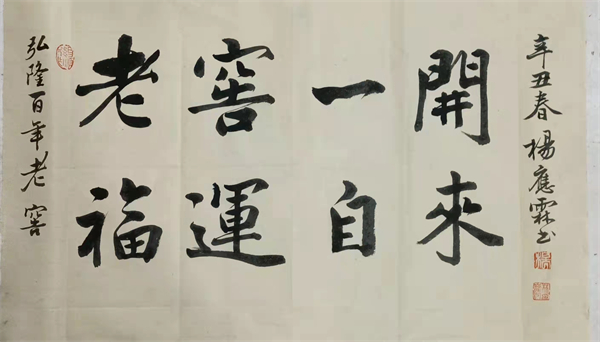 弘隆百年老窖
老窖一開
福運自來
辛丑春楊應霖书